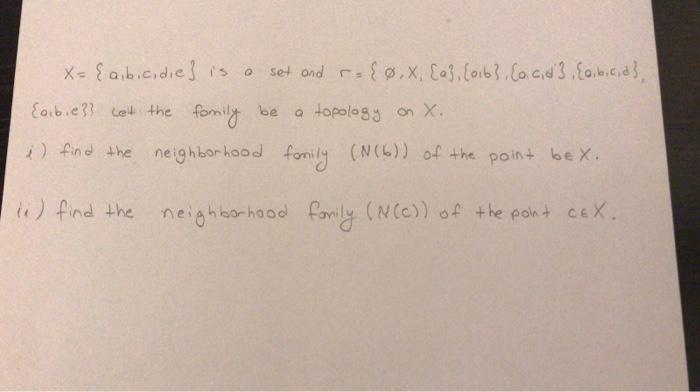 X= {a,b,c,d,e} is a set and τ = { ∅, X, {a}, {a,b}, {a,c,d}, {a,b,c,d},
{a,b,e}} the family be a topology on X.
i) find the neighborhood family (N(b)) of the point b∈X.
ii) find the neighborhood family (N(c)) of the point c∈X.